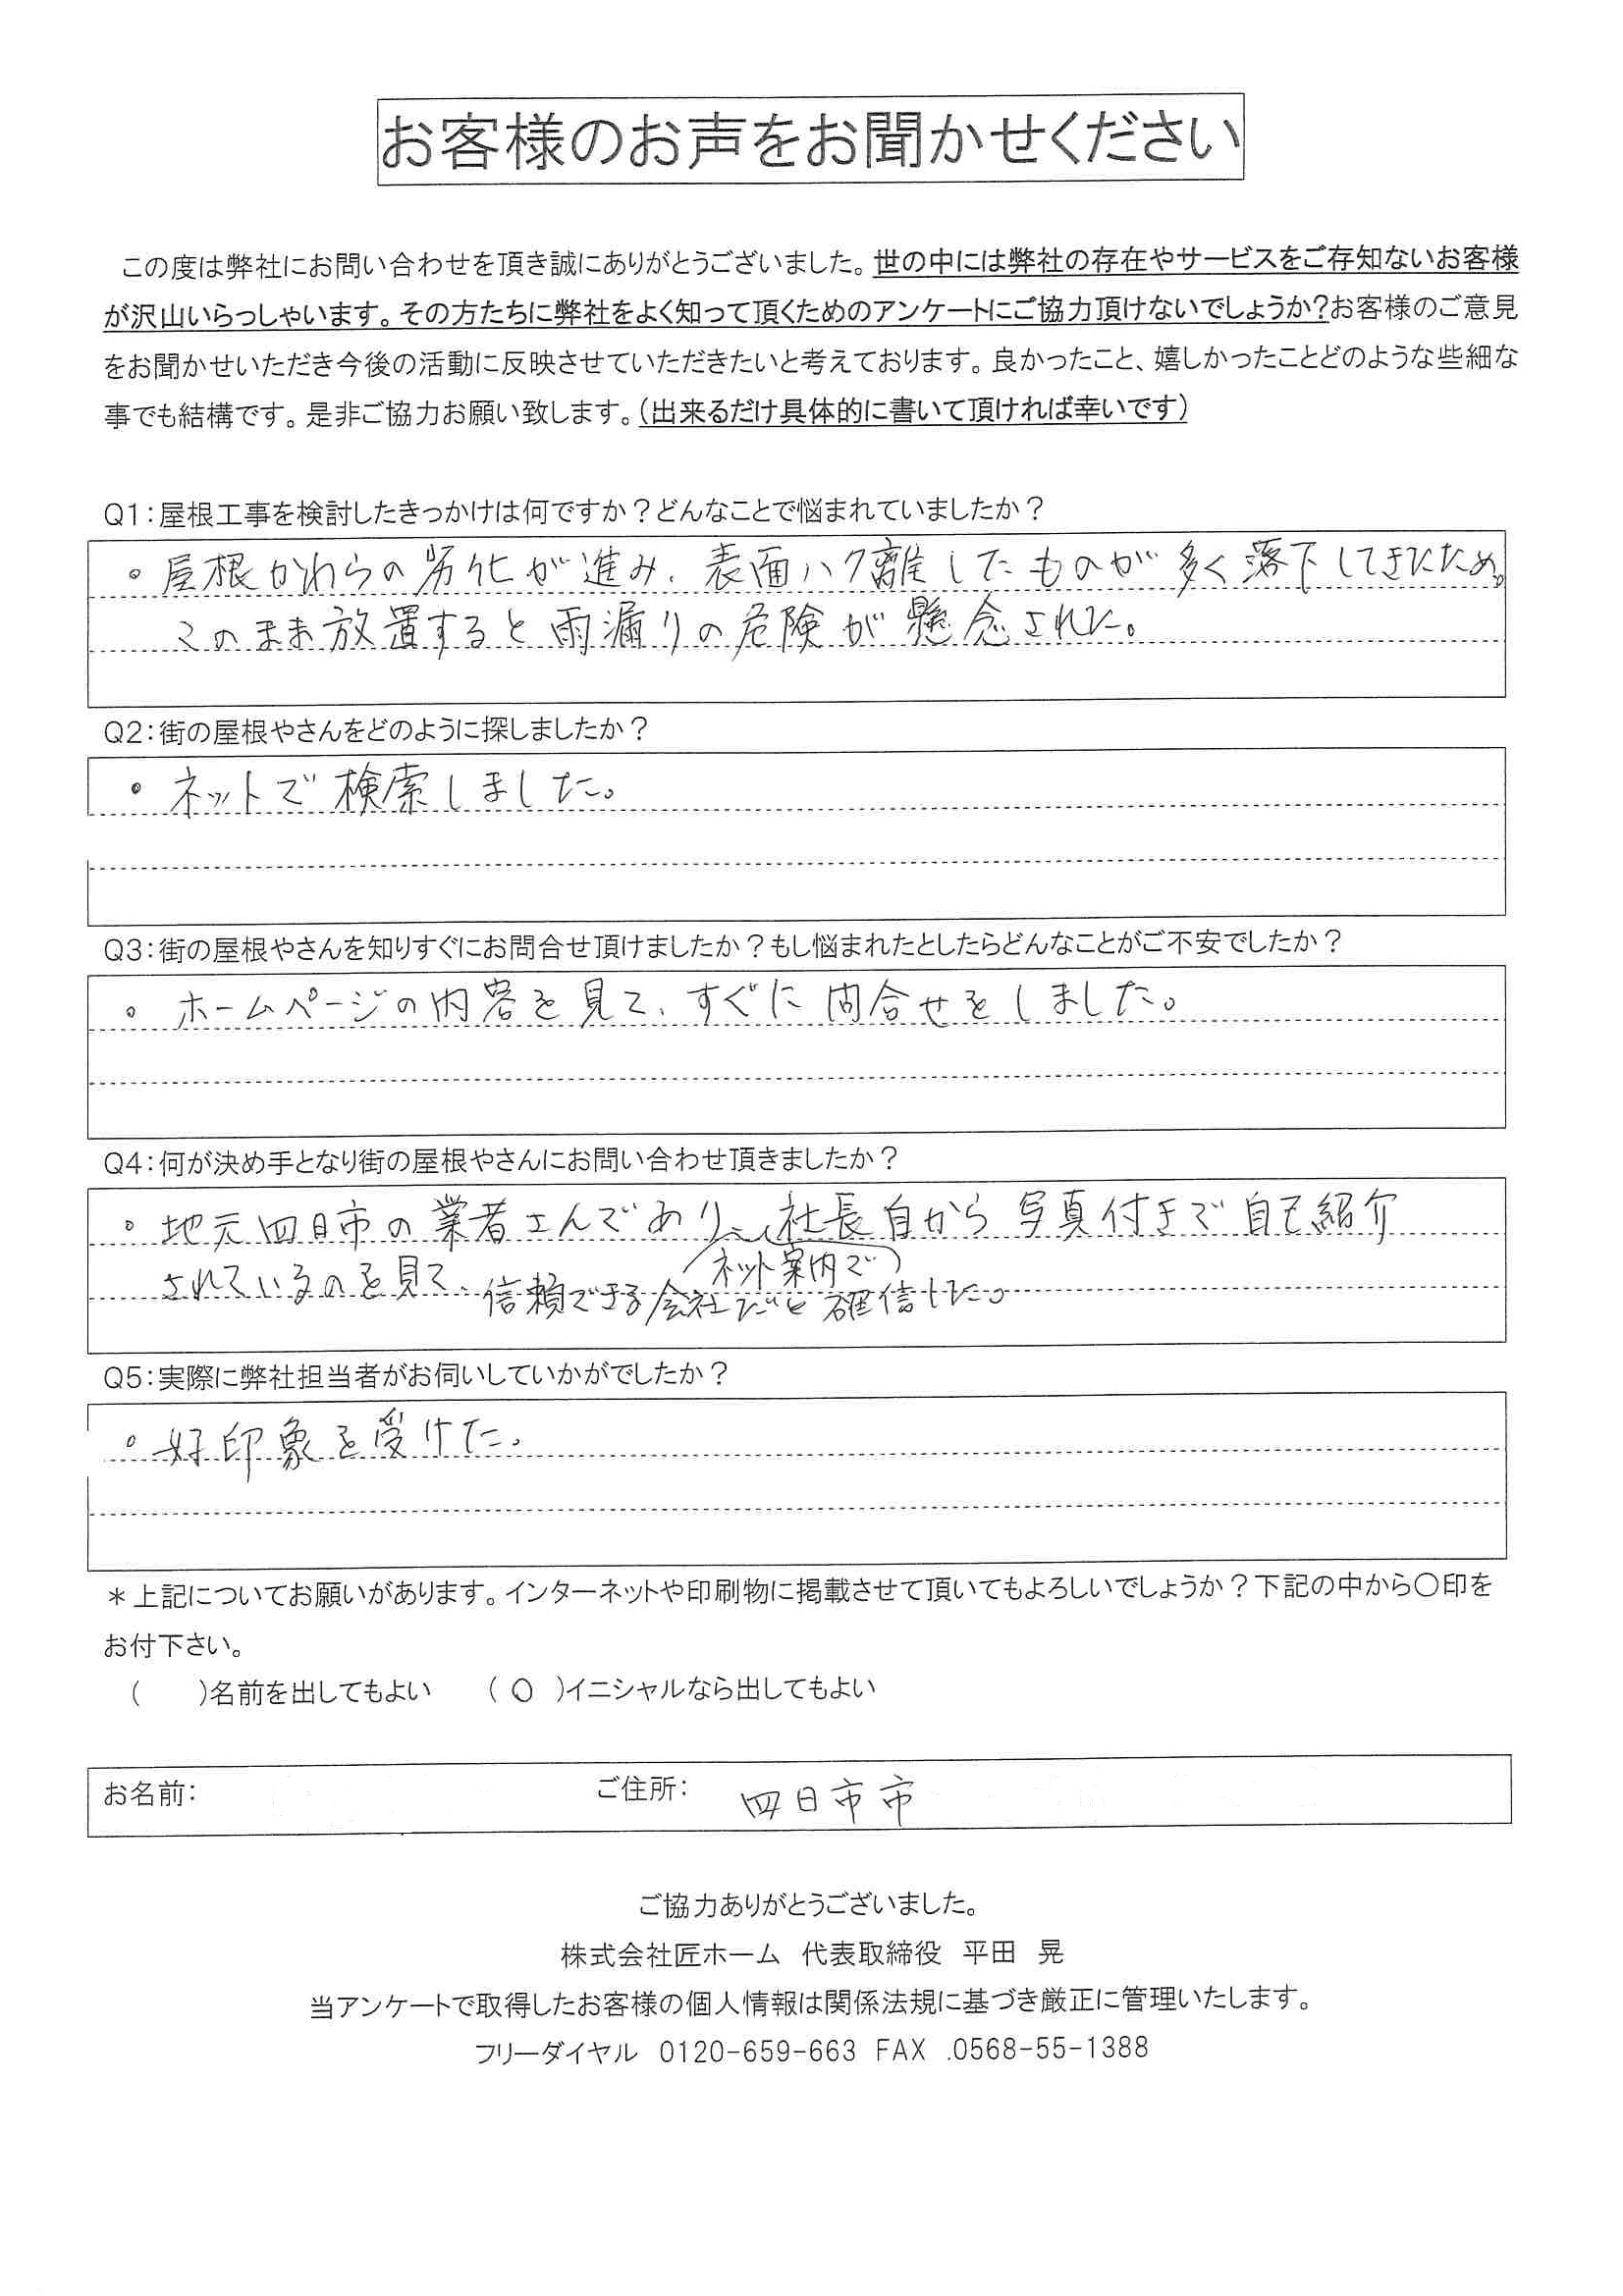 お客様のお声をお聞かせください
この度は弊社にお問い合わせを頂き誠にありがとうございました。世の中には弊社の存在やサービスをご存知ないお客様
が沢山いらっしゃいます。その方たちに弊社をよく知って頂くためのアンケートにご協力頂けないでしょうか?お客様のご意見
をお聞かせいただき今後の活動に反映させていただきたいと考えております。良かったこと、嬉しかったことどのような些細な
事でも結構です。是非ご協力お願い致します。(出来るだけ具体的に書いて頂ければ幸いです)
Q1:屋根工事を検討したきっかけは何ですか?どんなことで悩まれていましたか?
。屋根かわらの劣化が進み、表面ハク離したものが多く落下してきたため。
このまま放置すると雨漏りの危険が懸念された。
Q2:街の屋根やさんをどのように探しましたか?
・ネットで検索しました。
Q3:街の屋根やさんを知りすぐにお問合せ頂けましたか?もし悩まれたとしたらどんなことがご不安でしたか?
。ホームページの内容を見て、すぐに問合せをしました。
Q4:何が決め手となり街の屋根やさんにお問い合わせ頂きましたか?
。地元四日市の業者さんであり、社長自から写真付きで自己紹介
ネット案内で
されているのを見て、信頼できる会社だと確信した。
Q5:実際に弊社担当者がお伺いしていかがでしたか?
。好印象を受けた。
*上記についてお願いがあります。インターネットや印刷物に掲載させて頂いてもよろしいでしょうか?下記の中から〇印を
お付下さい。
(　　)名前を出してもよい　　(○)イニシャルなら出してもよい
お名前:　　ご住所:　四日市市
ご協力ありがとうございました。
株式会社匠ホーム　代表取締役　平田　晃
当アンケートで取得したお客様の個人情報は関係法規に基づき厳正に管理いたします。
フリーダイヤル　0120-659-663 FAX .0568-55-1388